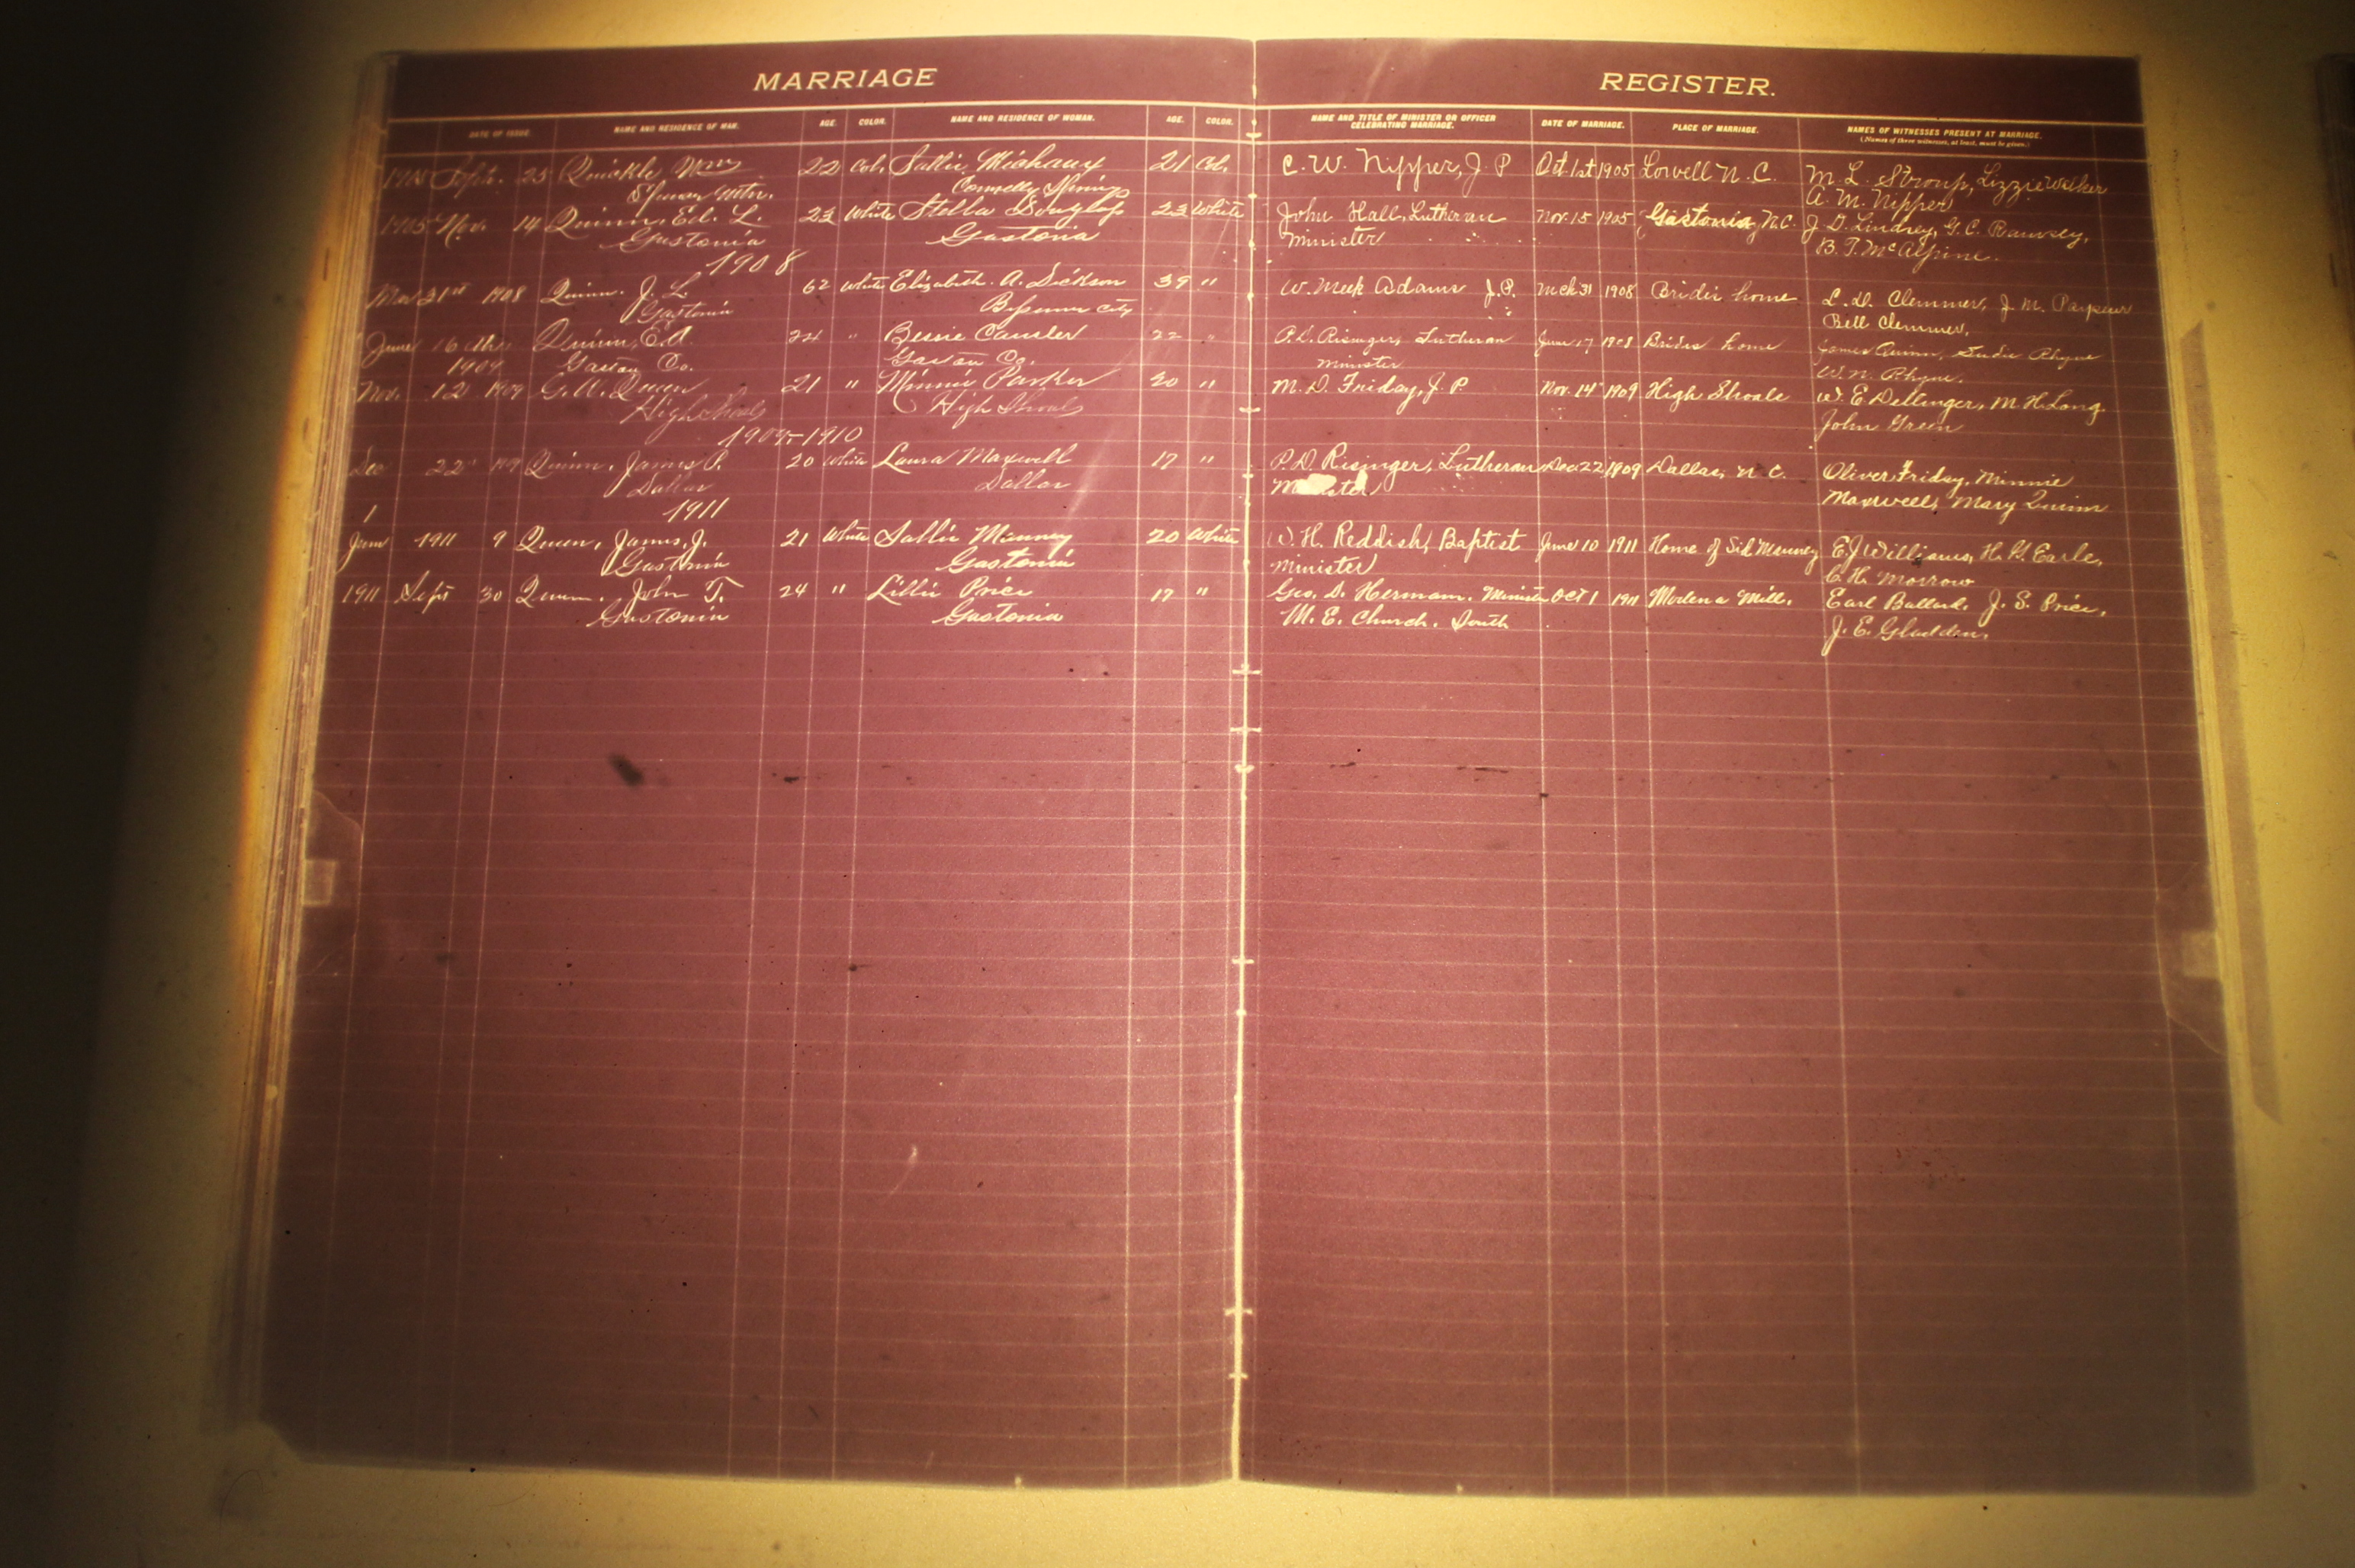 MARRIAGE REGISTER.
DATE OF ISSUE. NAME AND RESIDENCE OF MAN. AGE. COLOR. NAME AND RESIDENCE OF WOMAN. AGE. COLOR. NAME AND TITLE OF MINISTER OR OFFICER CELEBRATING MARRIAGE. DATE OF MARRIAGE. PLACE OF MARRIAGE. NAMES OF WITNESSES PRESENT AT MARRIAGE.
(Names of three witnesses, at least, must be given.)
1905 Sept. 25 Quickle Wm 22 Col. Sallie Michaux 21 Col. C. W. Nipper, J. P Oct. 1st 1905 Lowell N. C. M. L. Stroup, Lizzie Walker
Connelly Springs A. M. Nipper
1905 Nov. 14 Quinn, Ed. L. 23 White Stella Douglas 23 White John Hall, Lutheran Nov. 15 1905 Gastonia, N.C. J. D. Lindsey, G. C. Ramsey,
Gastonia Gastonia Minister B. T. McAlpine.
1908
Mar 31st 1908 Quinn. J. L. 62 White Elizabeth. A. Dickson 39 " W. Meek Adams J.P. Mch 31 1908 Brides home L. D. Clemmer, J. M.
Gastonia Bessemer City Bell Clemmer.
June 16th Quinn, E.A. 24 " Bessie Cansler 22 " P. D. Risinger, Lutheran June 17 1908 Brides home James Quinn, Sudie Rhyne
1909 Gaston Co. Gaston Co. Minister W. N. Rhyne.
Nov. 12 1909 G. W. Queen 21 " Minnie Parker 20 " M. D. Friday, J. P. Nov. 14 1909 High Shoals W. E. Dellinger, M. H. Long.
High Shoals High Shoals John Green
1909-1910
Dec 22 1909 Quinn, James P. 20 White Laura Maxwell 17 " P. D. Risinger, Lutheran Dec. 22 1909 Dallas, N. C. Oliver Friday, Minnie
Dallas Dallas Minister Maxwell, Mary Quinn
1 1911
June 1911 9 Queen, James, J. 21 White Sallie Mauney 20 White W. H. Reddish, Baptist June 10 1911 Home of Sid Mauney E. J Williams, H. G. Earle,
Gastonia Gastonia Minister C. H. Morrow
1911 Sept 30 Queen. John T. 24 " Lillie Price 17 " Geo. D. Herman. Minister Oct 1 1911 Modena Mill. Earl Ballard. J. S. Price.
Gastonia Gastonia M. E. Church. South J. E. Gladden.